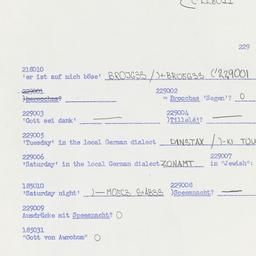 229
218010
'er ist auf mich böse' BROJGSS /)+BROEGSS (229001
229001 229002
)Brocchas? = Brocchas 'Segen'? O
229003 229004
'Gott sei dank' — )Tilleloj? —
229005
'Tuesday' in the local German dialect DINSTAX /)-KI
229006 229007
'Saturday' in the local German dialect ZONAMT in "Jewish":
185010 229008
'Saturday night' )— )Speemnacht? —
229009
Ausdrücke mit Speemnacht? O
185031
"Gott von Awrohom" O